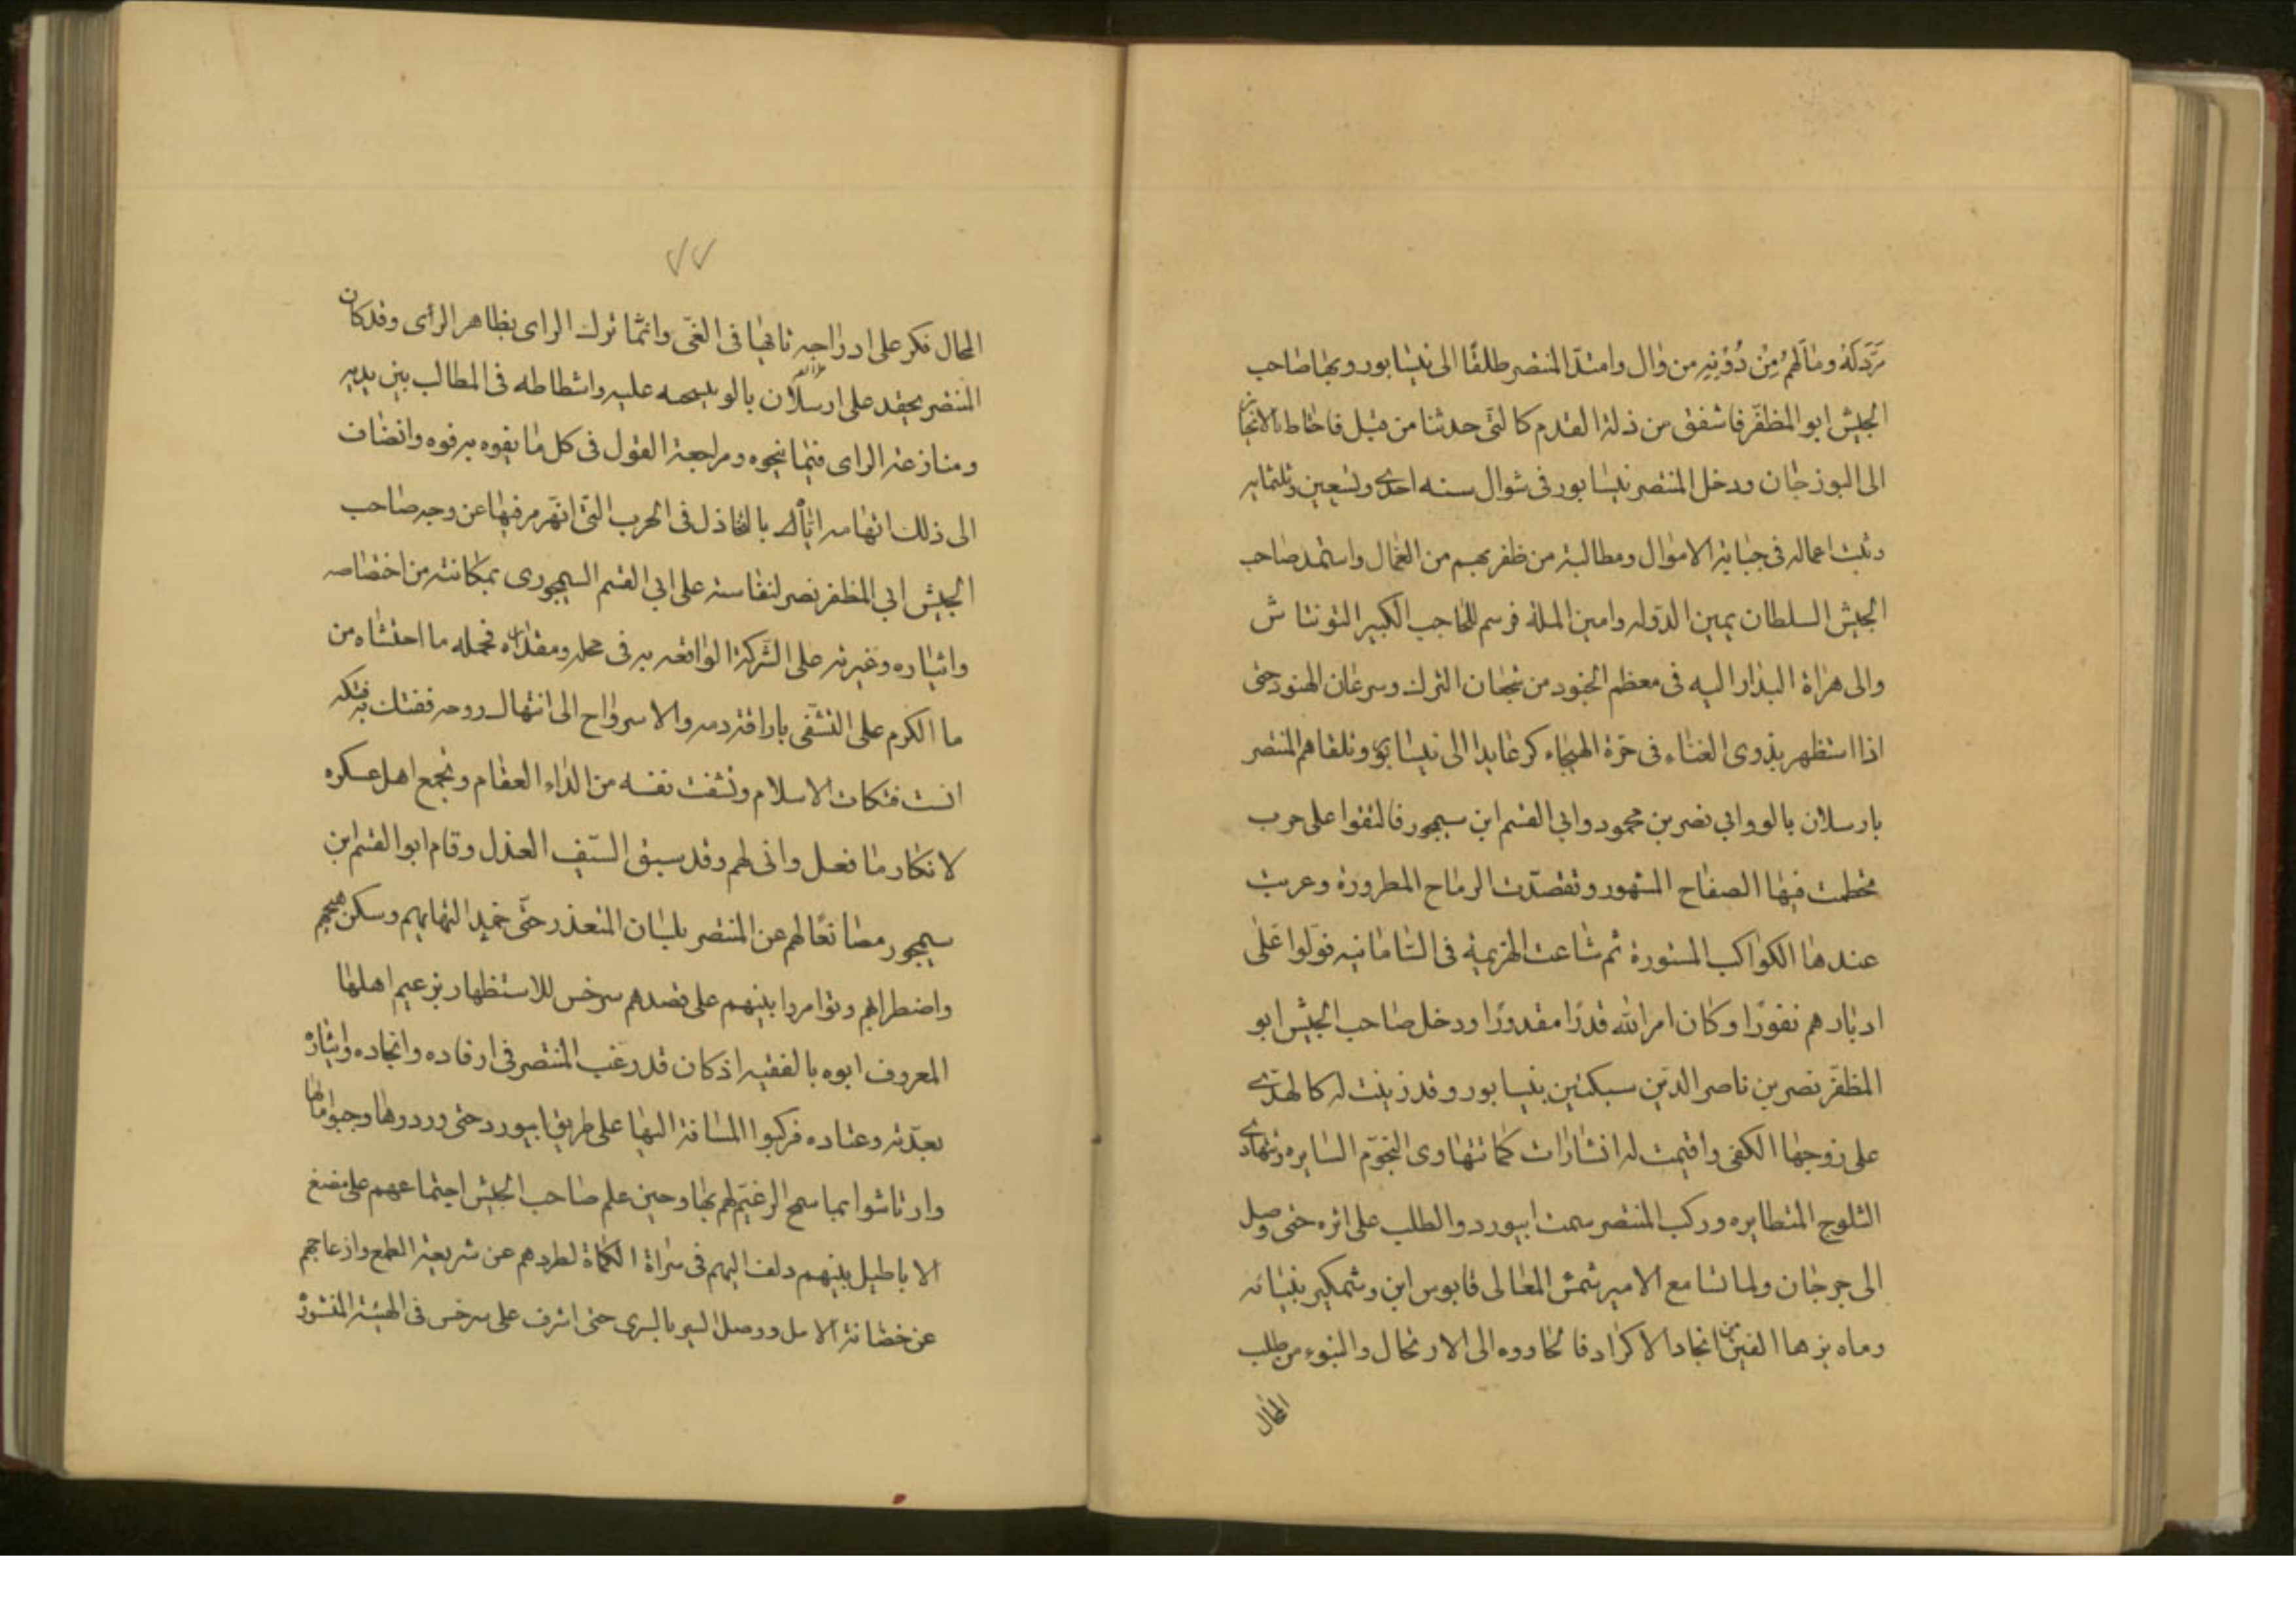 مَرَدَّ لَهُ وما لَهُمْ مِنْ دُوْنِهِ من وٰال وامتدّ المنتصر طلقًا الى نيسابور وبها صاحب
الجيش ابو المظفّر فاشفق من ذلة القدم كالتى حدثنا من قبل فاحتاط بالانحياز
الى البوزجان ودخل المنتصر نيسابور فى شوال سنه احدى وتسعين وثلثمايه
وبث اعماله فى جباية الاموال ومطالبة من ظفر بهم من العمال واستمد صاحب
الجيش السلطان يمين الدوله وامين الملة فرسم للحاجب الكبير التونتاش
والى هراة البدار اليه فى معظم الجنود من شجعان الترك وسرعان الهنود حتى
اذا استظهر بذوى الغناء فى حرّة الهيجاء كر عايدا الى نيسابور وتلقاهم المنتصر
بارسلان بالو وابي نصر بن محمود وابي القسم ابن سيمجور فالتقوا على حرب
تحطمت فيها الصفاح المشهور وتقصدت الرماح المطرورة وعريت
عندها الكواكب المستورة ثم شاعت الهزيمة فى السامانيه فوّلوا عَلى
ادبارهم نفورًا وكان امر الله قدرًا مقدورًا ودخل صاحب الجيش ابو
المظفّر نصر بن ناصر الدين سبكتين بنيسابور وقد زينت له كالهدى
على زوجها الكفى واقيمت له انتثارات كما تتهاوى النجوم السايره وتتهادى
الثلوج المتطايره وركب المنتصر سمت ابيورد والطلب على اثره حتى وصل
الى جرجان ولما تسامع الامير شمس المعالى قابوس ابن وشمكير
بزهاء الفين من انجاد الاكراد الى الارتحال والنبوء من طلب
المحال
٧٧
المحال فكر على ادراجه تايها فى الغى وانما ترك الراى بظاهر الرأى وقد كان
المنتصر يحقد على ارسلان بالو عليه واشتطاطه فى المطالب بين يديه
ومنازعته الراى فيما ينحوه ومراجعة القول فى كل ما يفوه به فوه وانضاف
الى ذلك اتهامه اياه بالتخاذل فى الحرب التى انهزم فيها عن وجه صاحب
الجيش ابي المظفر نصر لنفاسته على ابي القسم السيمجورى بمكانته من اختصاصه
وايثاره وغيرته على الشركة الواقعه به فى محله ومقداره فحمله ما احتشاه من
ما الكرم على التشفى باراقة دمه والاسترواح الى انتهال روحه ففتك به فتكه
انست فتكات الاسلام وشفت نفسه من الداء العقام وتجمع اهل عسكره
لانكار ما فعل وانى لهم وقد سبق السّيف العذل وقام ابو القسم ابن
سيمجور مصانعًا لهم عن المنتصر بلسان المتعذر حتى خمد التهابهم وسكن هيجهم
واضطرابهم وتوامروا بينهم على قصدهم سرخس للاستظهار بزعيم اهلها
المعروف ابوه بالفقيه اذ كان قد رغب المنتصر فى ارفاده وانجاده وايثاره
بعدّته وعتاده فركبوا المسافة اليها على طريق ابيورد حتى وردوها وجبوا مالها
وارتاشوا بما سمح الزعيم لهم بها وحين علم صاحب الجيش اجتماعهم على مضغ
الاباطيل بينهم دلف اليهم فى سراة الكماة لطردهم عن شريعة الطمع وازعاجهم
عن حضانة الامل ووصل السير بالسرى حتى اشرف على سرخس فى الهيئة المنشورة